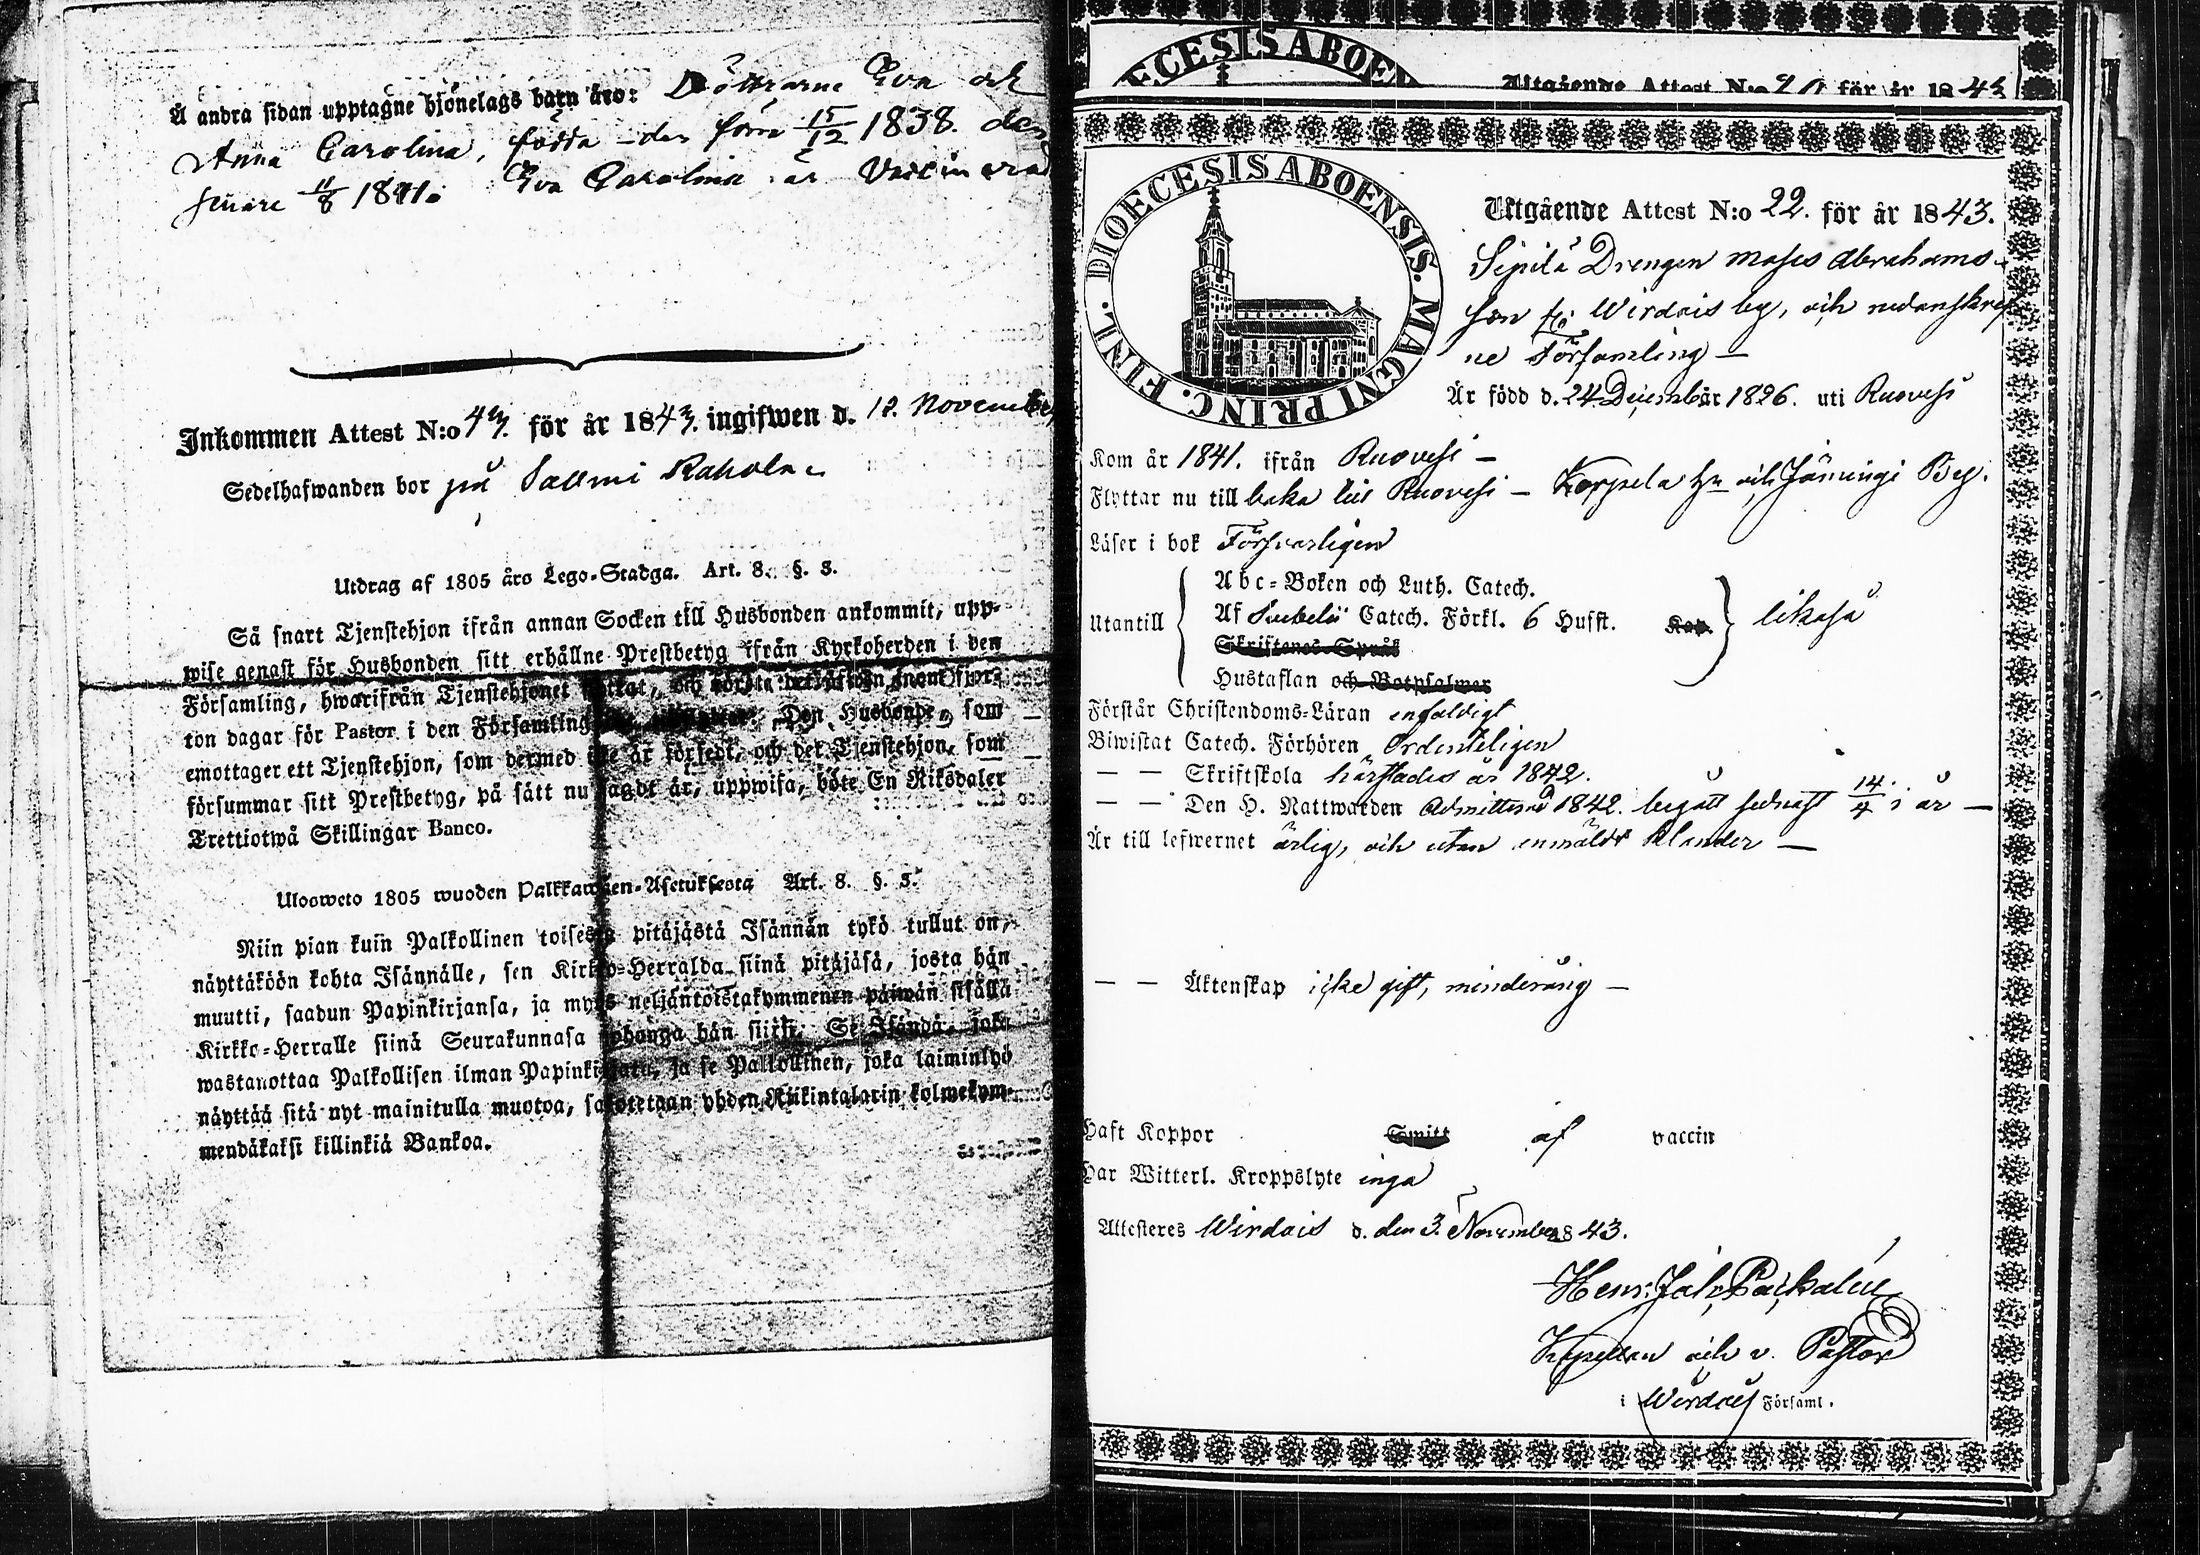 Å andra sidan upptagne hjonelags barn äro: Döttrarne Eva och
Anna Carolina, födda den förra 15/12 1838. den
senare 11/8 1841. Eva Carolina är Vaccinerad
Inkommen Attest N:o 43. för år 1843. ingifwen d. 12. November
Sedelhafwanden bor på Sallmi Rahola
Utdrag af 1805 års Lego-Stadga. Art. 8. §. 3.
Så snart Tjenstehjon ifrån annan Socken till Husbonden ankommit, upp-
wise genast för Husbonden sitt erhållne Prestbetyg ifrån Kyrkoherden i den
Församling, hwarifrån Tjenstehjonet flyttat, och förete det jäfwen inom fjor-
ton dagar för Pastor i den Församling Den Husbonde, som
emottager ett Tjenstehjon, som dermed icke är försedt, och det Tjenstehjon, som
försummar sitt Prestbetyg, på sätt nu sagdt är, uppwisa, böte En Riksdaler
Trettiotwå Skillingar Banco.
Ulosweto 1805 wuoden Palkkawäen-Asetuksesta Art. 8. §. 3.
Niin pian kuin Palkollinen toisesta pitäjästä Isännän tykö tullut on,
näyttäköön kohta Isännälle, sen Kirkko-Herralda siinä pitäjäsä, josta hän
muutti, saadun Papinkirjansa, ja myös neljäntoistakymmenen päiwän sisällä
Kirkko-Herralle siinä Seurakunnasa johonga hän siirsi. Se Isändä, joka
wastanottaa Palkollisen ilman Papinkirjata, ja se Palkollinen, joka laiminlyö
näyttää sitä nyt mainitulla muotoa, sakotetaan yhden Riikintalarin kolmekym-
mendäkaksi killinkiä Bankoa.
ECESIS ABOEN
Utgående Attest N:o 20 för år 1843
DIOECESIS ABOENSIS. MAGNI PRINC. FINL.
Utgående Attest N:o 22. för år 1843.
Sipilä Drengen Moses Abrahams-
son fr. Wirdois by, och nedanskref
ne Församling —
Är född d. 24 December 1826. uti Ruovesi
Kom år 1841. ifrån Ruovesi —
Flyttar nu till baka till Ruovesi — Korpela hn och Jäminge By.
Läser i bok Försvarligen
Abc-Boken och Luth. Catech.
Utantill Af Svebelii Catech. Förkl. 6 Hufst. Kap. likaså
Skriftenes Språk
Hustaflan och Botpsalmer
Förstår Christendoms-Läran enfaldigt
Biwistat Catech. Förhören Ordenteligen
— — Skriftskola härstädes år 1842.
— — Den H. Nattwarden Admitterad 1842. begått sednast 14/4 i år —
Är till lefwernet ärlig, och utan anmäldt klander —
— — Äktenskap icke gift, minderårig —
Haft Koppor Smitt af vaccin
Har Witterl. Kroppslyte inga
Attesteres Wirdois d. den 3. November 1843.
Henr: Joh: Paikalén
Kapellan och v. Pastor
i Wirdois Församl.